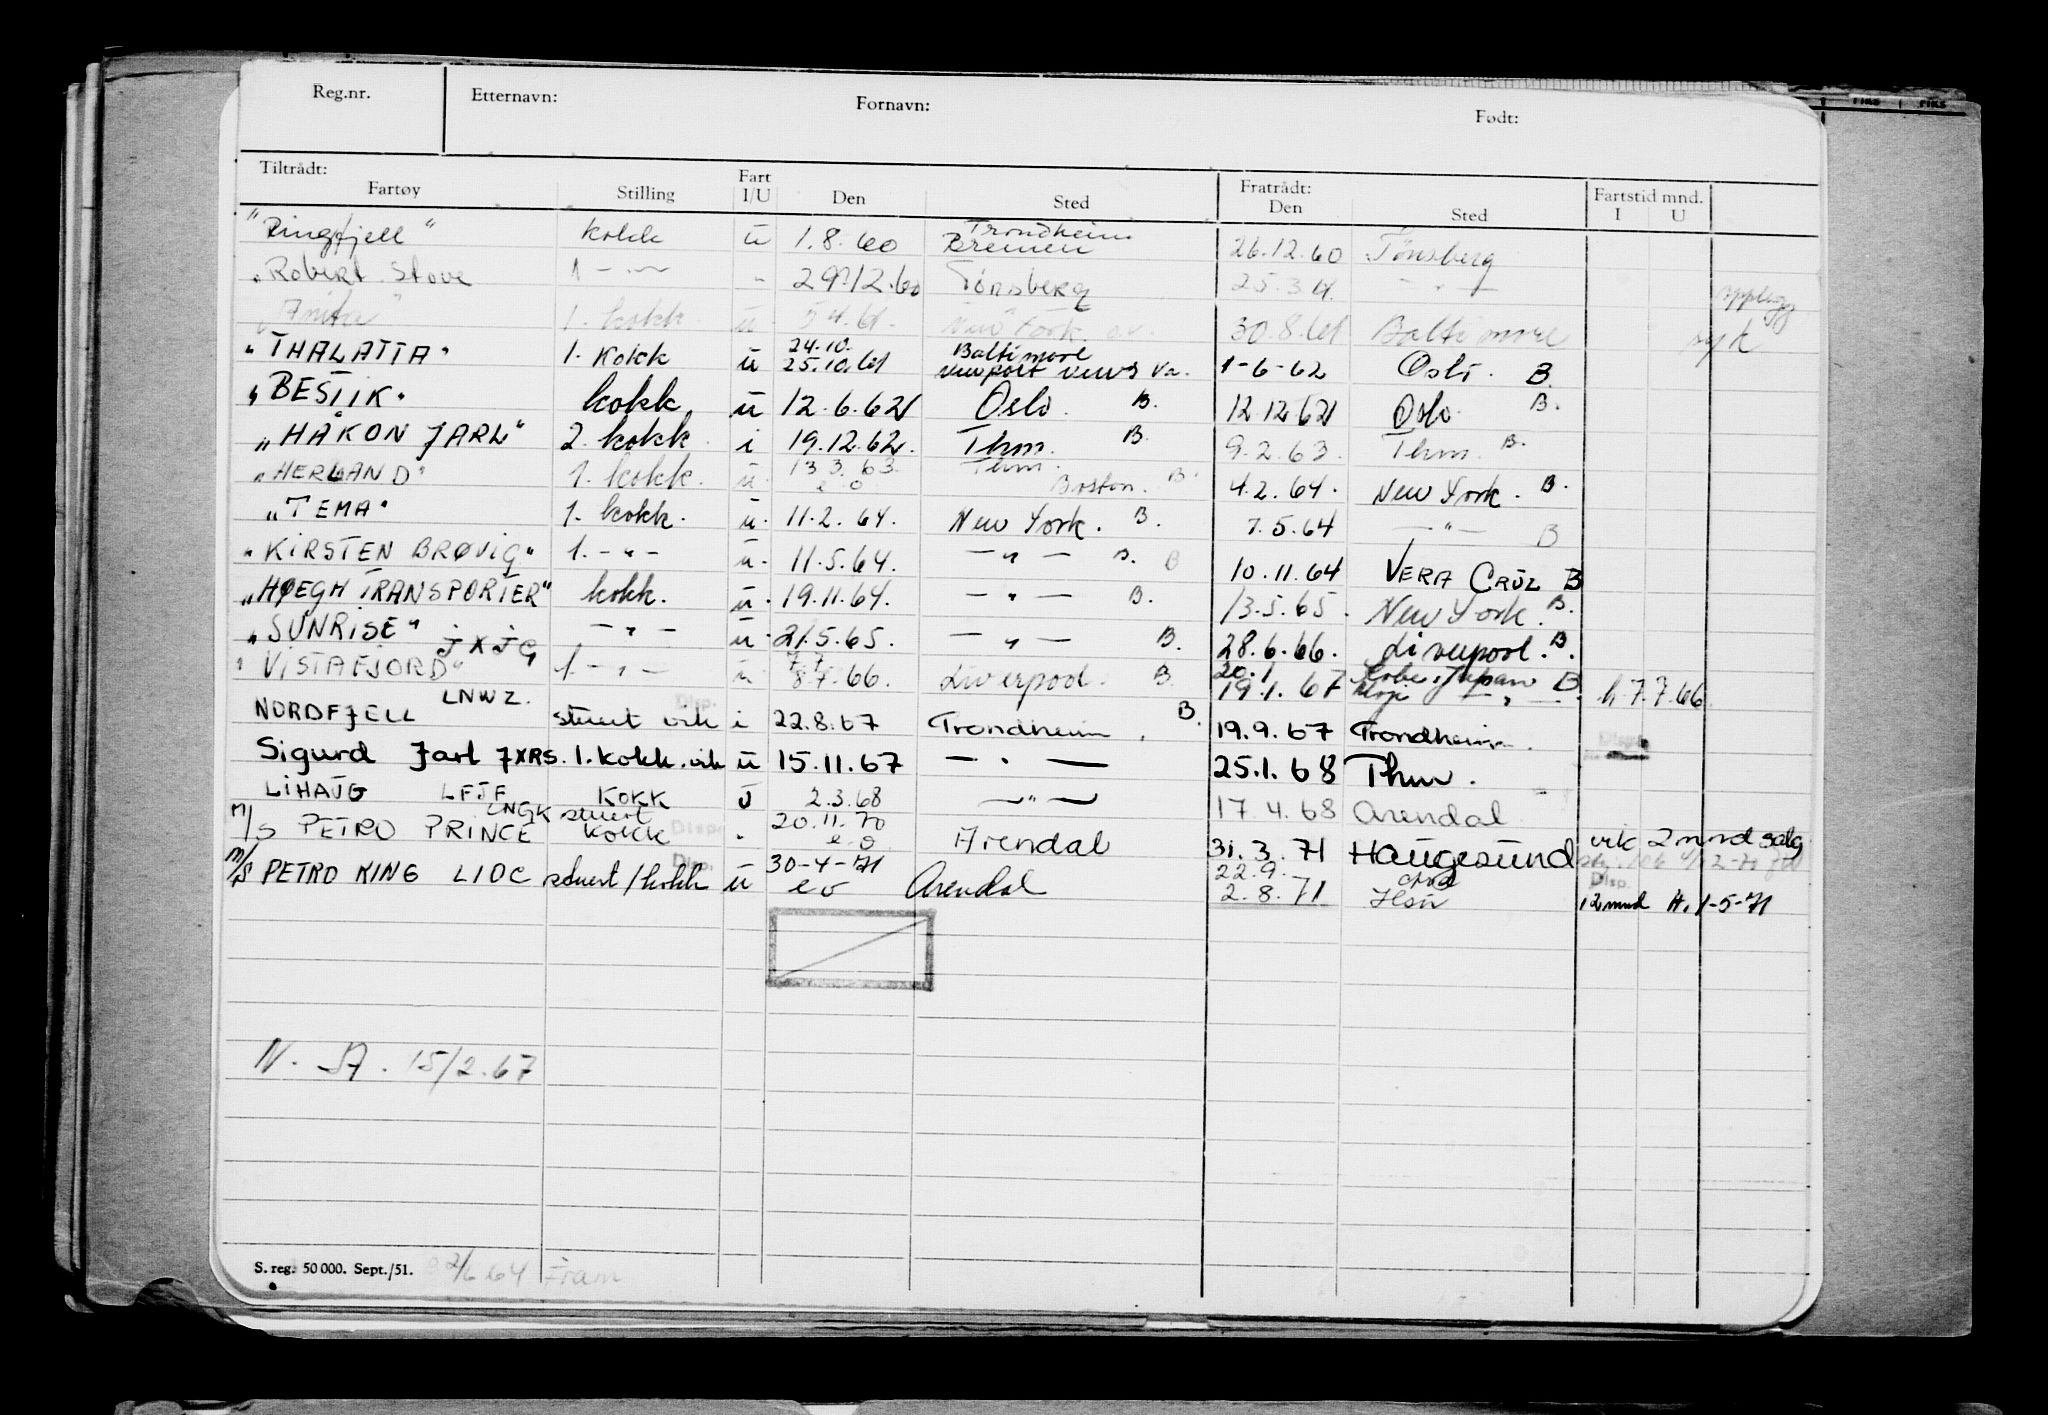 Reg.nr. Etternavn: Fornavn: Født:
Tiltrådt: Fratrådt:
Fartøy Stilling Fart I/U Den Sted Den Sted Fartstid mnd. I U
"Ringfjell" kokk u 1.8.60 Trondheim Bremen 26.12.60 Tønsberg
"Robert Stove 1 - " - 29.12.60 Tønsberg 25.3.61 - " - opplegg
"Anita" 1. kokk u 5.4.61. New York 30.8.61 Baltimore syk
"THALATTA" 1. kokk u 24.10. 25.10.61 Baltimore Newport News Va. 1-6-62 Oslo. B.
"BESTIK" kokk u 12.6.62 Oslo. B. 12.12.62 Oslo. B.
"HÅKON JARL" 2. kokk i 19.12.62. Thm. B. 9.2.63. Thm. B.
"HERLAND" 1. kokk. u. 13.3.63. e o Thm. Boston. B. 4.2.64. New York. B.
"TEMA" 1. kokk. u. 11.2.64. New York. B. 7.5.64 - " - B
"KIRSTEN BRØVIG" 1. - " - u. 11.5.64. - " - B. B 10.11.64 VERA CRUZ B
"HØEGH TRANSPORTER" kokk. u. 19.11.64. - " - B. 13.5.65. New York. B.
"SUNRISE" - " - u. 21.5.65. - " - B. 28.6.66. Liverpool. B.
"VISTAFJORD" JXJG 1. - " - u 7.7 8.7.66. Liverpool. B. 20.1 19.1.67 Kobe, Japan B Moji - " - h 7.7.66
NORDFJELL LNWZ. stuert vik i 22.8.67 Trondheim. B. 19.9.67 Trondheim. Disp.
Sigurd Jarl JXRS. 1. kokk. vik u 15.11.67 - " - 25.1.68 Thm.
LIHAUG LFJF KOKK U 2.3.68 - " - 17.4.68 Arendal
M/S PETRO PRINCE LNGK stuert kokk Disp. " 20.11.70 e o Arendal 31.3.71 Haugesund vik 2 mnd salg
M/S PETRO KING LIOC stuert/kokk Disp. u 30-4-71 e o Arendal 22.9. 2.8.71 Disp. 12 mnd H. 1-5-71
N. SA. 15/2.67
S. reg. 50 000. Sept./51. 2/6 64 Fram